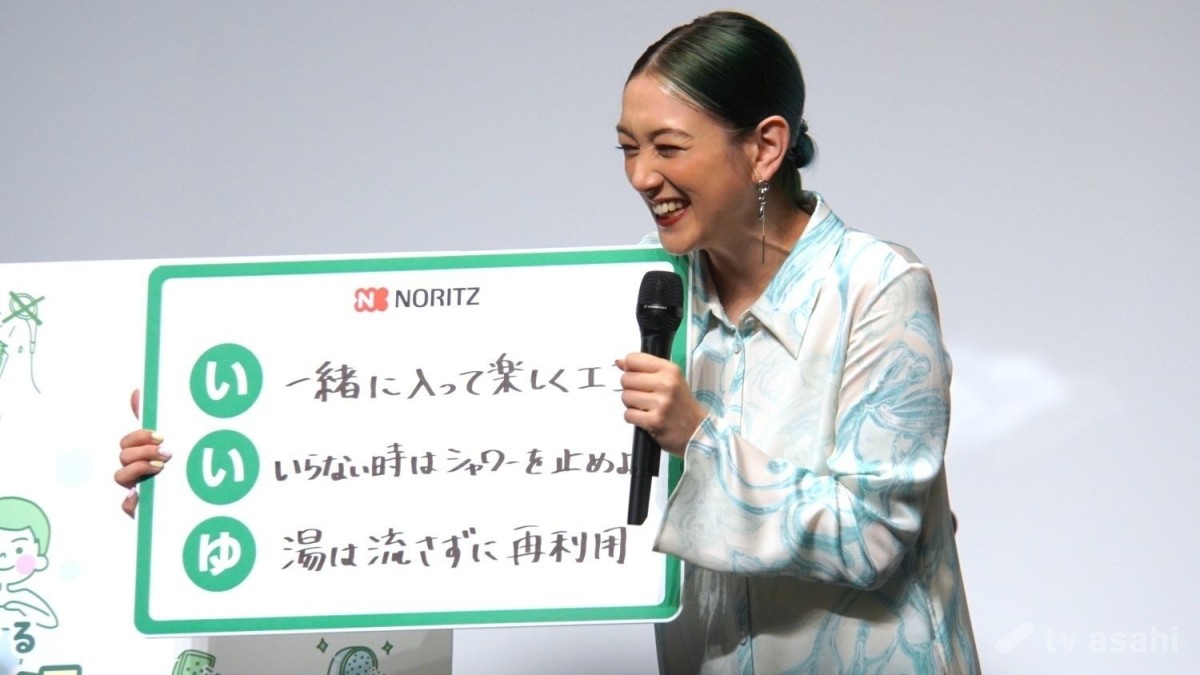 NORITZ
い 一緒に入って楽しくエコ
い いらない時はシャワーを止めよ
ゆ 湯は流さずに再利用
る
tv asahi